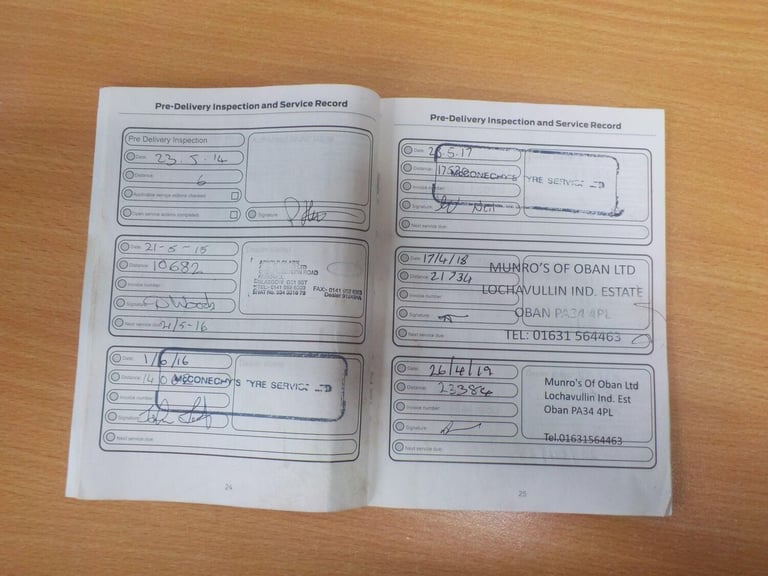 Pre-Delivery Inspection and Service Record
Pre Delivery Inspection
Date: 23.5.14
Distance: 6
Applicable service actions checked:
Open service actions completed:
Signature:
Date: 21-5-15
Distance: 10682
Invoice number:
Signature: Woods
Next service due: 21/5-16
Date: 1/6/16
Distance:
Invoice number:
Signature:
Next service due:
MCCONECHY'S TYRE SERVICE LTD
24
Pre-Delivery Inspection and Service Record
Date: 5.17
Distance:
Invoice number:
Signature:
Next service due:
MCCONECHY'S TYRE SERVICE LTD
Date: 17/4/18
Distance: 21734
Invoice number:
Signature:
Next service due:
MUNRO'S OF OBAN LTD
LOCHAVULLIN IND. ESTATE
OBAN PA34 4PL
TEL: 01631 564463
Date: 26/4/19
Distance: 23384
Invoice number:
Signature:
Next service due:
Munro's Of Oban Ltd
Lochavullin Ind. Est
Oban PA34 4PL
Tel.01631564463
25